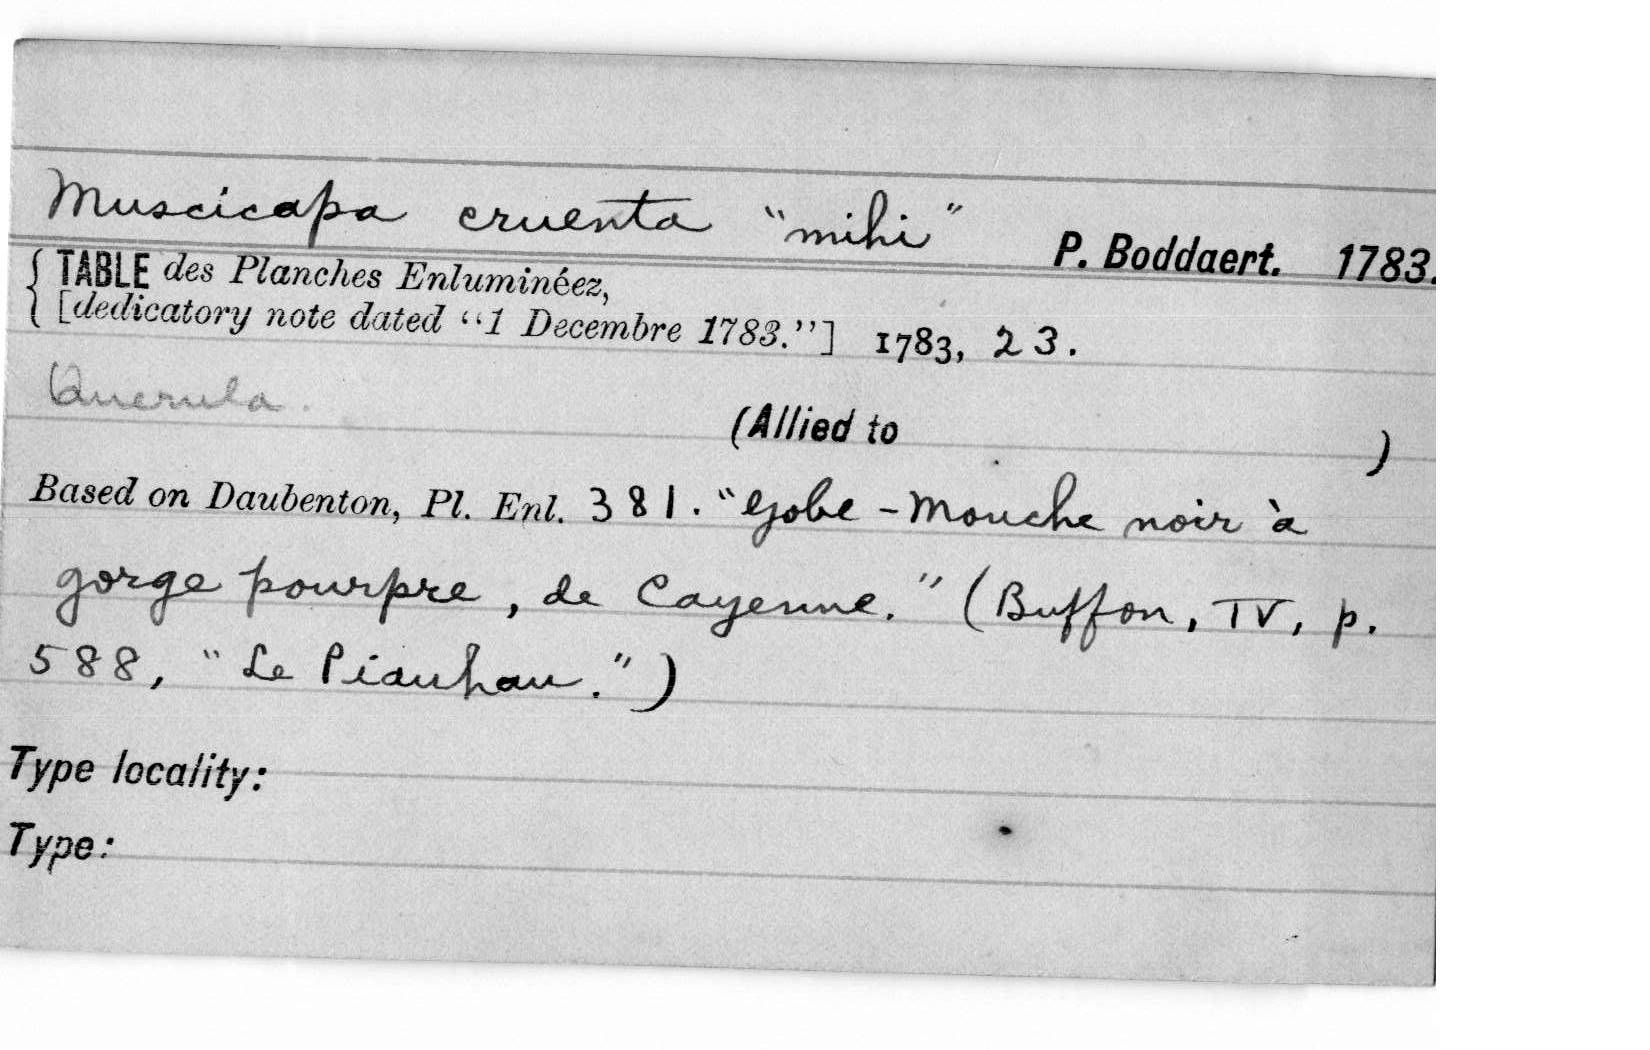 Muscicapa cruenta "mihi" P. Boddaert. 1783.
{ TABLE des Planches Enluminéez,
[dedicatory note dated "1 Decembre 1783."] 1783, 23.
Querula.
(Allied to )
Based on Daubenton, Pl. Enl. 381. "Gobe-Mouche noir à
gorge pourpre, de Cayenne." (Buffon, IV, p.
588, "Le Piauhau.")
Type locality:
Type: